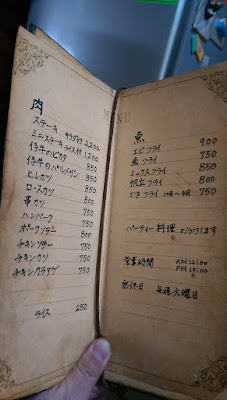 MENU
肉
ステーキ サラダ付 2,200
ミニステーキ ライス付 1,200
仔牛のピカタ 850
仔牛のパルメザン 850
ヒレカツ 850
ロースカツ 850
串カツ 800
ハンバーグ 750
ポークソテー 800
チキンソテー 750
チキンカツ 750
チキンカラアゲ 750
ライス 250
魚
エビフライ 900
魚フライ 750
ミックスフライ 850
帆立フライ 800
かきフライ 750
パーティー料理 うけたまわります
営業時間 AM 12:00
PM
定休日 毎週火曜日